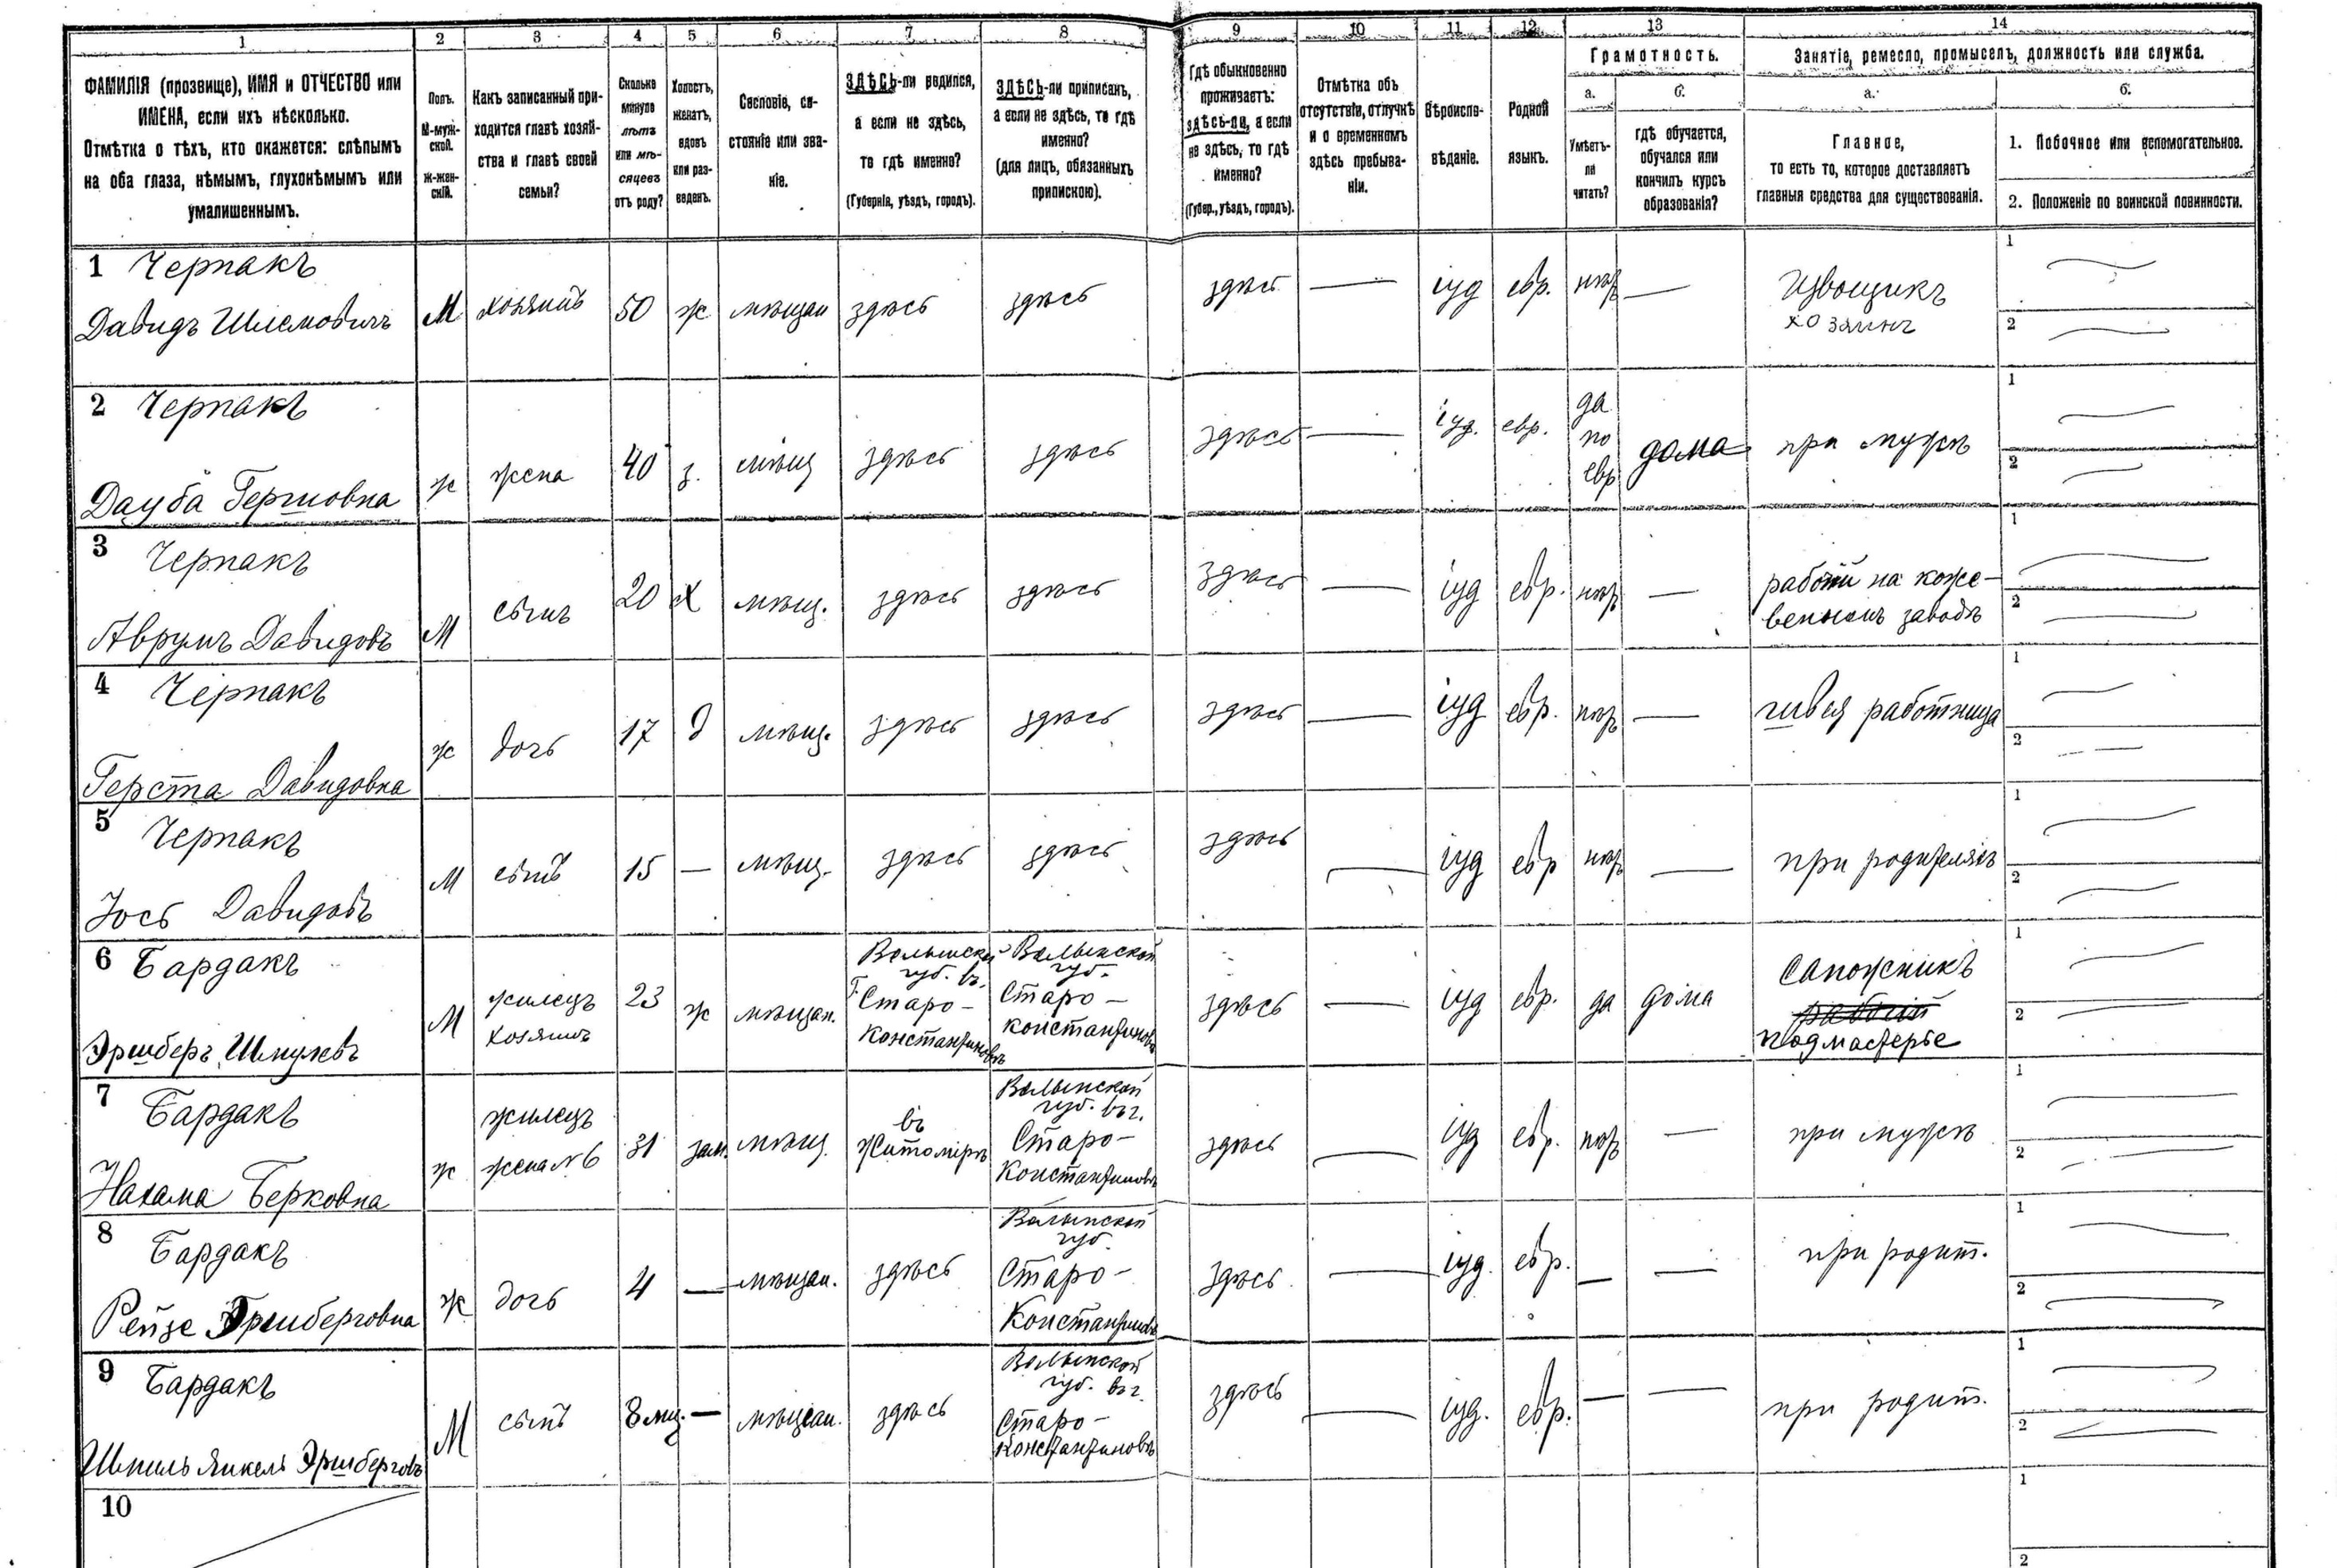 1 2 3 4 5 6 7 8 9 10 11 12 13 14
ФАМИЛІЯ (прозвище), ИМЯ и ОТЧЕСТВО или
ИМЕНА, если ихъ нѣсколько.
Отмѣтка о тѣхъ, кто окажется: слѣпымъ
на оба глаза, нѣмымъ, глухонѣмымъ или
умалишеннымъ.
Полъ.
М-муж-
ской.
Ж-жен-
скій.
Какъ записанный при-
ходится главѣ хозяй-
ства и главѣ своей
семьи?
Сколько
минуло
лѣтъ
или мѣ-
сяцевъ
отъ роду?
Холостъ,
женатъ,
вдовъ
или раз-
веденъ.
Сословіе, со-
стояніе или зва-
ніе.
ЗДѢСЬ-ли родился,
а если не здѣсь,
то гдѣ именно?
(Губернія, уѣздъ, городъ).
ЗДѢСЬ-ли приписанъ,
а если не здѣсь, то гдѣ
именно?
(для лицъ, обязанныхъ
припискою).
Гдѣ обыкновенно
проживаетъ:
здѣсь-ли, а если
не здѣсь, то гдѣ
именно?
(Губер., уѣздъ, городъ).
Отмѣтка объ
отсутствіи, отлучкѣ
и о временномъ
здѣсь пребыва-
ніи.
Вѣроиспо-
вѣданіе.
Родной
языкъ.
Грамотность.
а.
Умѣетъ-
ли
читать?
б.
гдѣ обучается,
обучался или
кончилъ курсъ
образованія?
Занятіе, ремесло, промыселъ, должность или служба.
а.
Главное,
то есть то, которое доставляетъ
главныя средства для существованія.
б.
1. Побочное или вспомогательное.
2. Положеніе по воинской повинности.
1 Черпакъ
Давидъ Шлемовичъ М хозяинъ 50 ж мѣщан здѣсь здѣсь здѣсь — іуд евр. нѣтъ — Извощикъ
хозяинъ
1
2
2 Черпакъ
Дауба Гершовна ж жена 40 з. мѣщ здѣсь здѣсь здѣсь — іуд. евр. да
по
евр дома при мужѣ
1
2
3 Черпакъ
Аврумъ Давидовъ М сынъ 20 х мѣщ. здѣсь здѣсь здѣсь — іуд евр. нѣтъ — рабочій на коже-
венномъ заводѣ
1
2
4 Черпакъ
Герста Давидовка ж дочь 17 д мѣщ. здѣсь здѣсь здѣсь — іуд евр. нѣтъ — швея работница
1
2
5 Черпакъ
Іось Давидовъ М сынъ 15 — мѣщ. здѣсь здѣсь здѣсь — іуд евр нѣтъ — при родителяхъ
1
2
6 Бардакъ
Эршберъ Шмулевъ М жилецъ
хозяинъ 23 ж мѣщан.
Волынской
губ. въ
г. Старо-
константиновѣ
Волынской
губ.
Старо-
константиновъ
здѣсь — іуд евр. да дома Сапожникъ
рабочій
подмастерье
1
2
7 Бардакъ
Нахама Берковна ж жилецъ
жена №6 31 зам. мѣщ.
въ
Житомірѣ
Волынской
губ. въ г.
Старо-
Константиновѣ
здѣсь — іуд евр. нѣтъ — при мужѣ
1
2
8 Бардакъ
Рейзе Эршберговна ж дочь 4 — мѣщан. здѣсь
Волынской
губ.
Старо-
Константиновъ
здѣсь — іуд. евр. — — при родит.
1
2
9 Бардакъ
Шмиль Янкель Эршберговъ М сынъ 8 мц. — мѣщан. здѣсь
Волынской
губ. въ г.
Старо-
Константиновъ
здѣсь — іуд. евр. — — при родит.
1
2
10
1
2